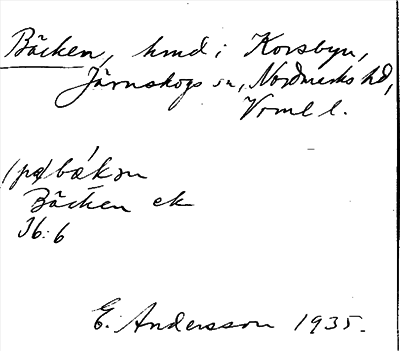 Bäcken, hmd i Korsbyn,
Järnskogs sn, Nordmarks hd,
Vrml l.
(pɑ) bǽkən
Bäcken ek
Jb: 6
E. Andersson 1935.